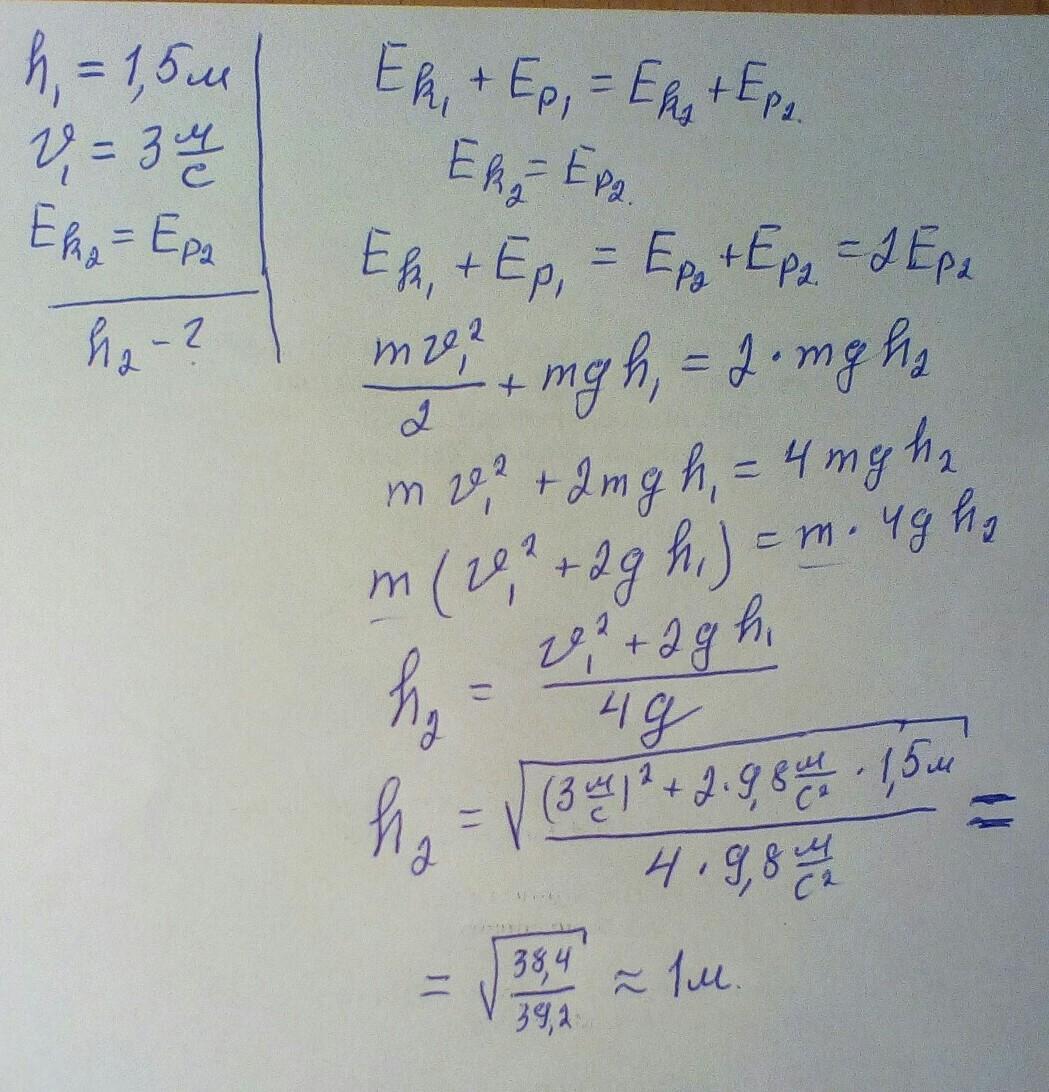 h₁ = 1,5 м
v₁ = 3 м/с
Eк₂ = Eр₂
h₂ - ?
Eк₁ + Eр₁ = Eк₂ + Eр₂.
Eк₂ = Eр₂.
Eк₁ + Eр₁ = Eр₂ + Eр₂. = 2Eр₂
mv₁²/2 + mgh₁ = 2 · mgh₂
mv₁² + 2mgh₁ = 4mgh₂
m(v₁² + 2gh₁) = m · 4gh₂
h₂ = (v₁² + 2gh₁)/(4g)
h₂ = √(((3 м/с)² + 2 · 9,8 м/с² · 1,5 м)/(4 · 9,8 м/с²)) =
= √(38,4/39,2) ≈ 1 м.